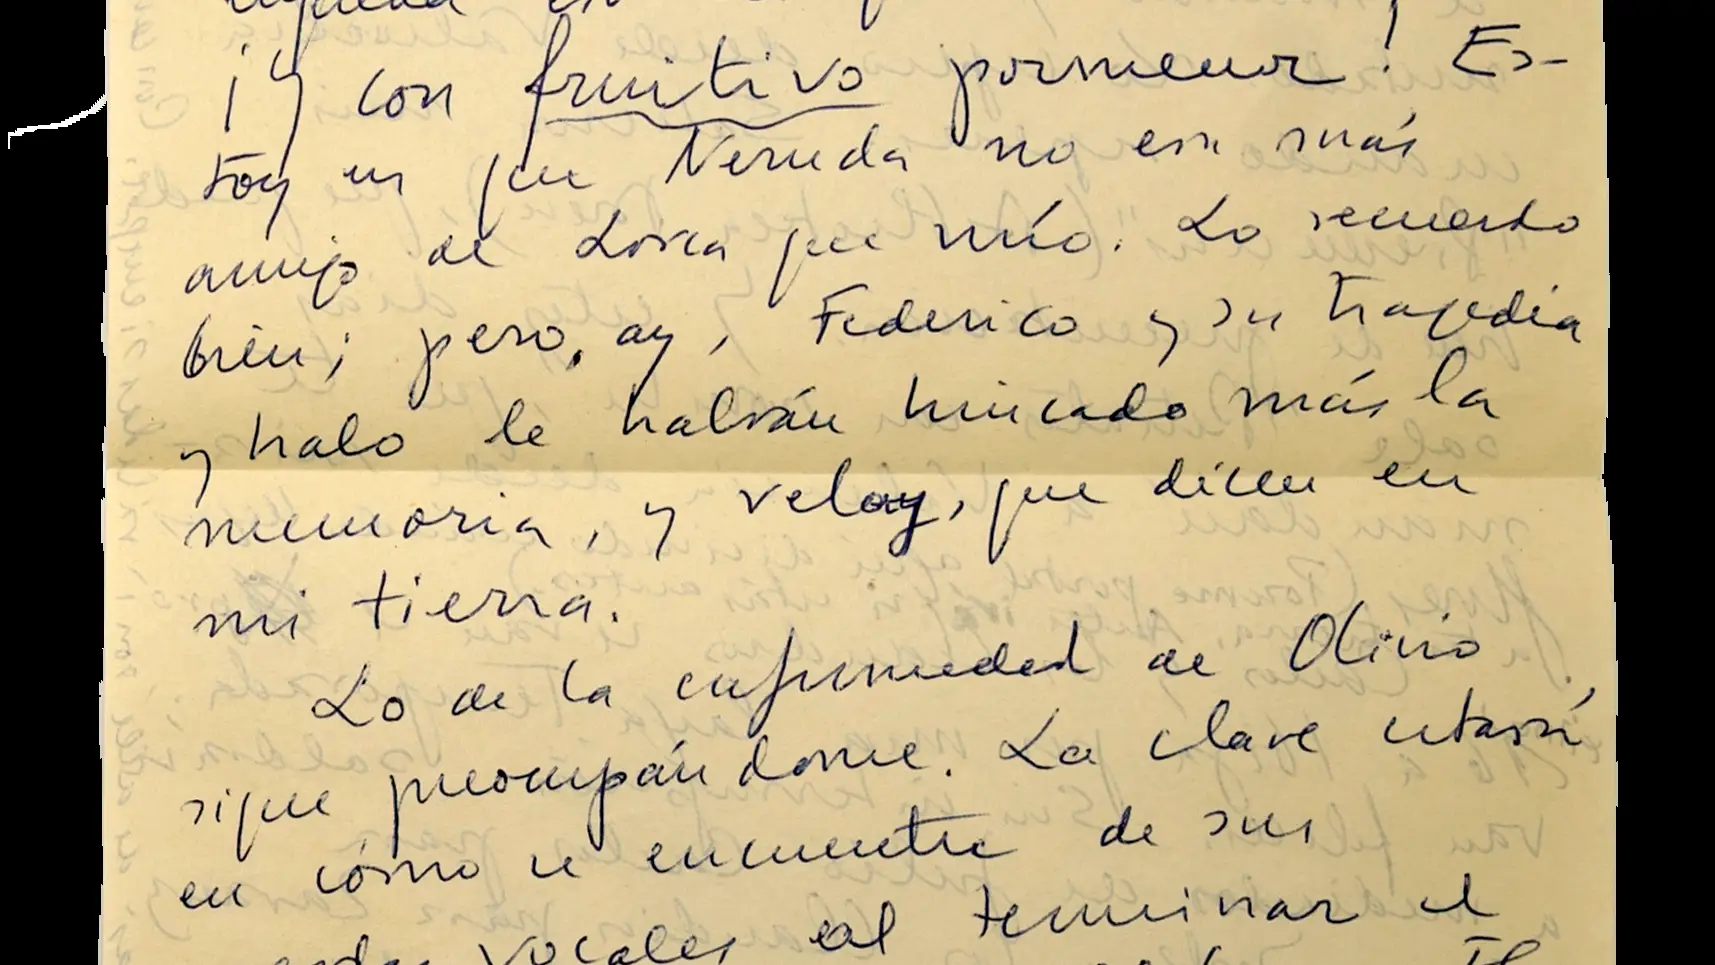 ¡y con fruitivo pormenor! Es-
toy en que Neruda no era más
amigo de Lorca que mío. Lo recuerdo
bien; pero, ay, Federico y su tragedia
y halo le habrán hincado más la
memoria, y velay, que dicen en
mi tierra.
Lo de la enfermedad de Olivio
sigue preocupándome. La clave estará
en cómo se encuentre de sus
cuerdas vocales al terminar el